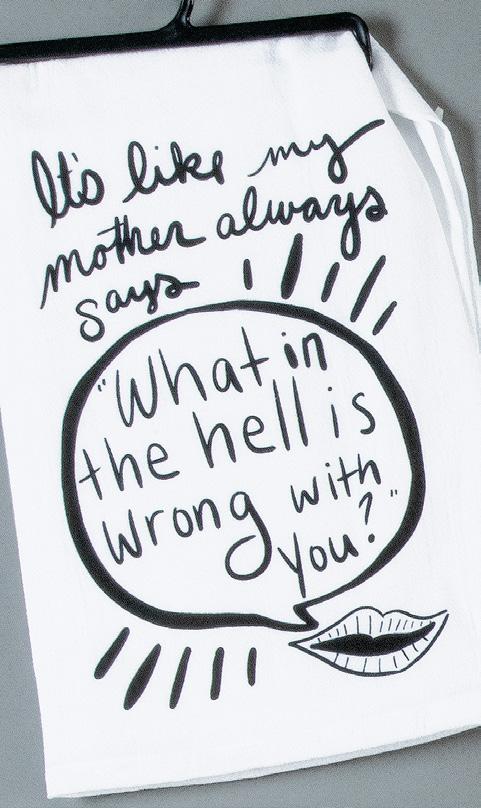 It's like my
mother always
says
"What in
the hell is
wrong with
you?"